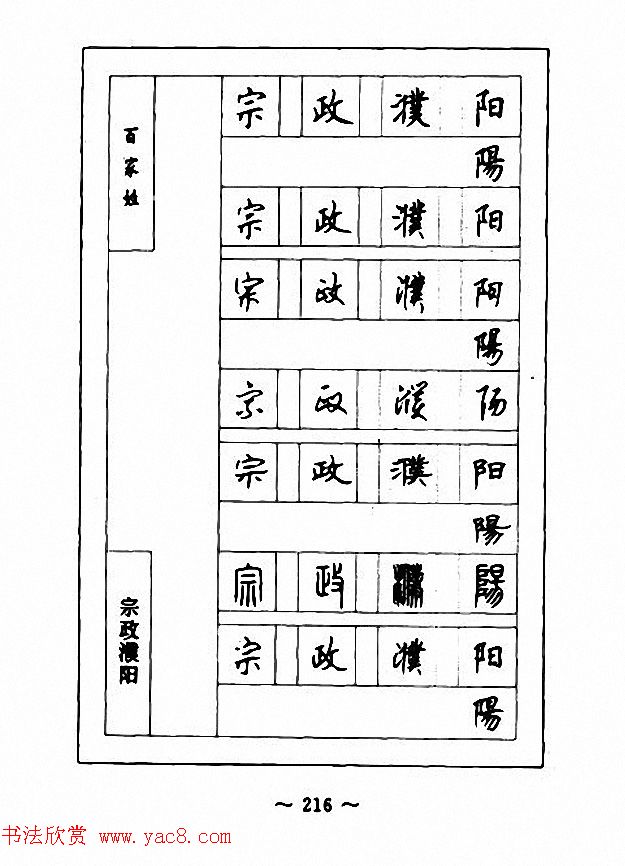 百家姓
宗政濮阳
宗 政 濮 阳
陽
宗 政 濮 阳
宗 政 濮 阳
陽
宗 政 濮 阳
宗 政 濮 阳
陽
宗 政 濮 陽
宗 政 濮 阳
陽
～ 216 ～
书法欣赏 www.yac8.com